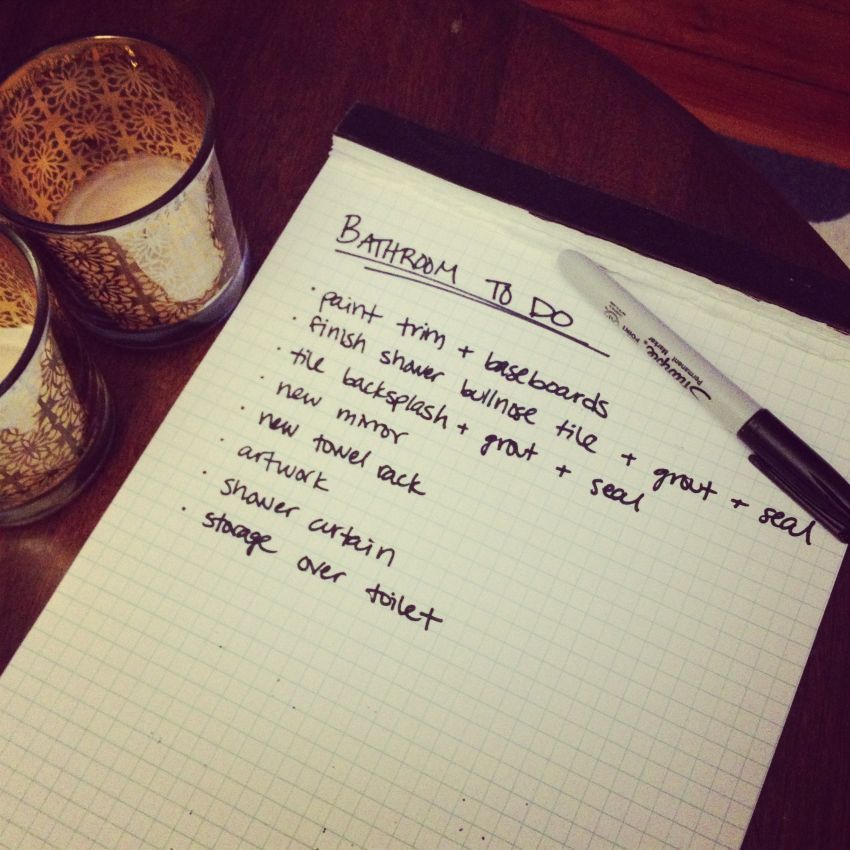 BATHROOM TO DO
· paint trim + baseboards
· finish shower bullnose tile + grout + seal
· tile backsplash + grout + seal
· new mirror
· new towel rack
· artwork
· shower curtain
· storage over toilet
Sharpie
FINE POINT
Permanent Marker